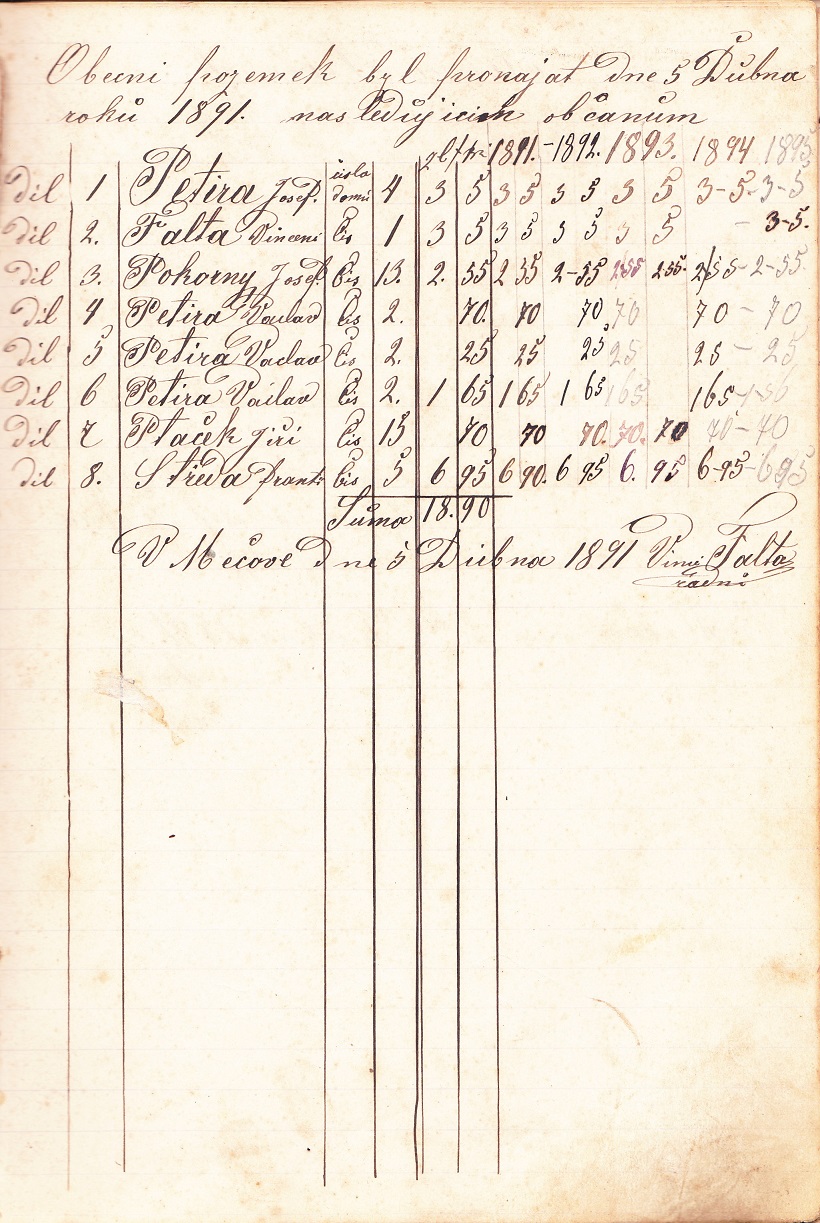 Obecni pozemek byl pronajat dne 5 Dubna
roků 1891. nasledůjicim občanům
zl / kr 1891. - 1892. 1893. 1894 1895
dil 1 Petira Josef. čislo domů 4 3 5 3 5 3 5 3 5 3-5- 3-5
dil 2. Falta Vincenc Čis 1 3 5 3 5 3 5 3 5 - 3-5.
dil 3. Pokorny Josef. Čis 13. 2. 55 2 55 2-55 2 55 2 55. 2/55- 2-55.
dil 4 Petira Vaclav Čis 2. 70. 70 70 70 70 - 70
dil 5 Petira Vaclav Čis 2. 25 25 25 25 25 - 25
dil 6 Petira Vaclav Čis 2. 1 65 1 65 1 65 1 65 165
dil 7 Ptaček Jiři Čis 15 70 70 70. 70. 70 70 - 70
dil 8. Středa Frant. Čis 5 6 95 6 90. 6 95 6. 95 6-95- 6 95
Sůma 18.90
V Mečove dne 5 Dubna 1891 Vinc Falta
radni